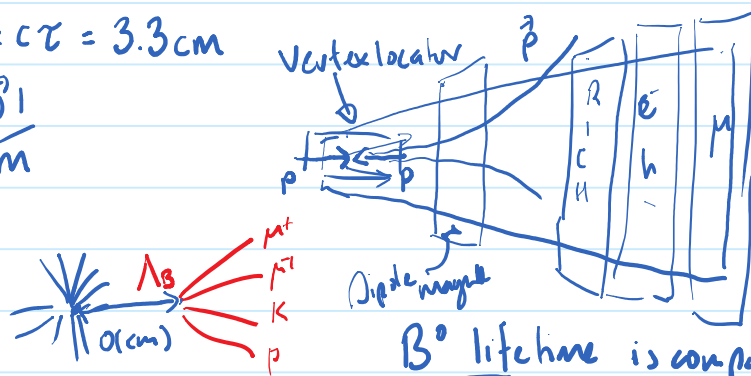 = cτ = 3.3cm
Vertex locator
p⃗
RICH
e
h
μ
m
p
p
Dipole magnet
Λ_B
μ+
μ-
K
p
O(cm)
B⁰ lifetime is compa